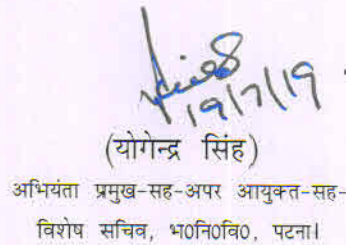 19/7/19
(योगेन्द्र सिंह)
अभियंता प्रमुख-सह-अपर आयुक्त-सह-
विशेष सचिव, भ0नि0वि0, पटना।